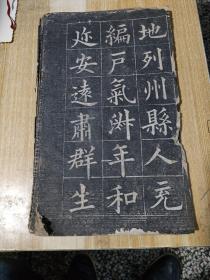 地列州縣人充
編戶氣淑年和
迩安遠肅群生